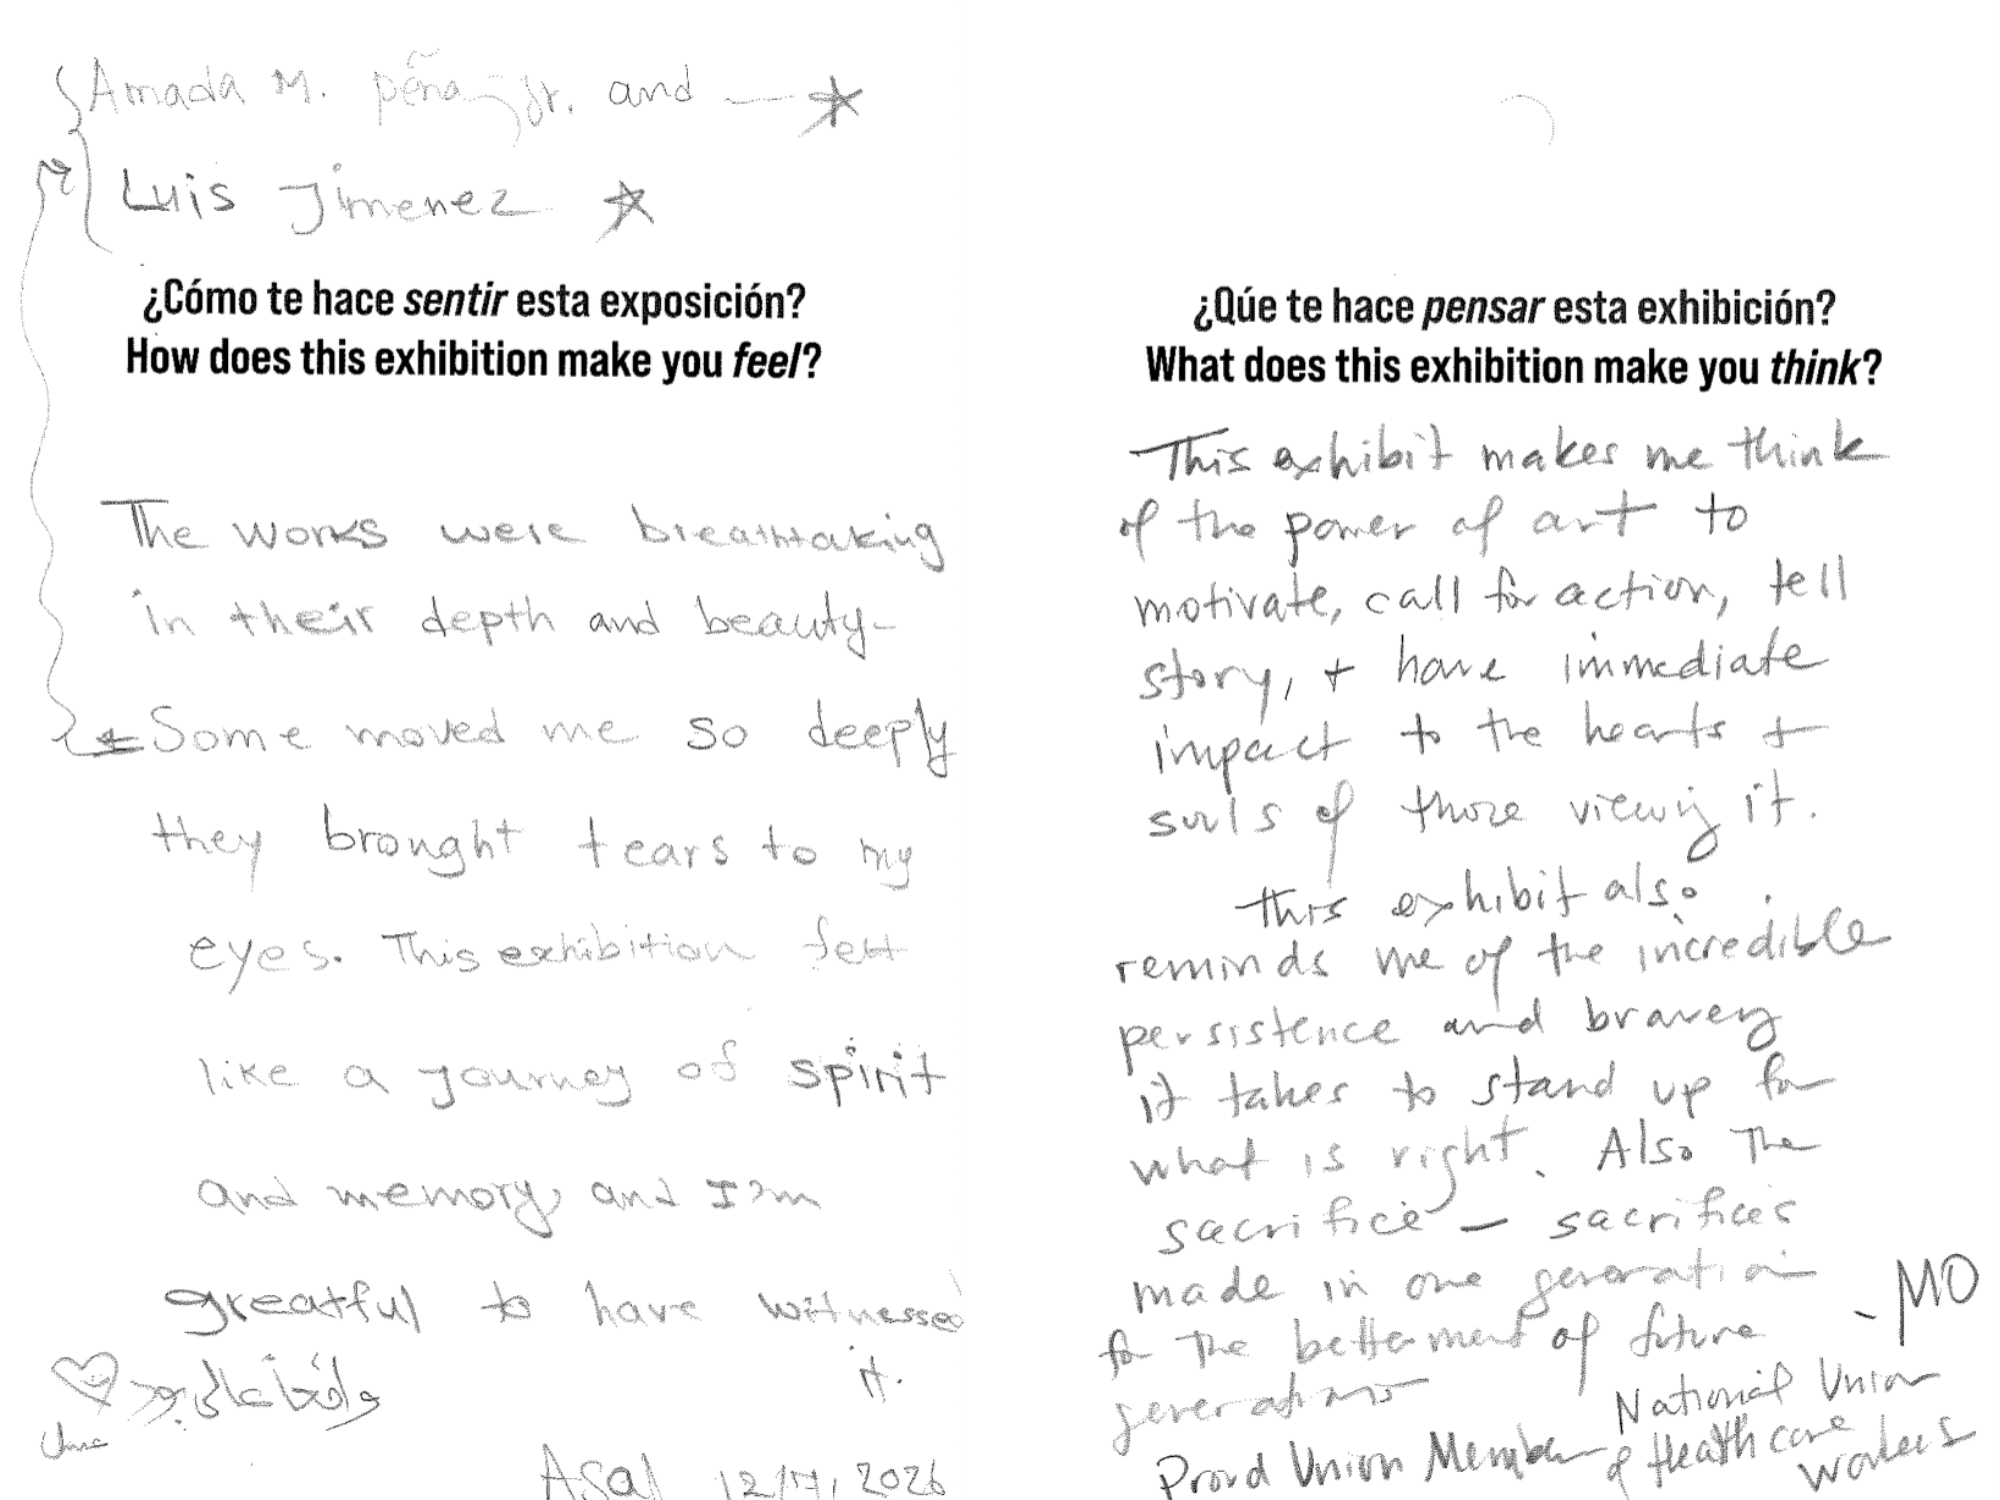 Amada M. peña Jr. and
Luis Jimenez
¿Cómo te hace sentir esta exposición?
How does this exhibition make you feel?
The works were breathtaking
in their depth and beauty-
Some moved me so deeply
they brought tears to my
eyes. This exhibition felt
like a journey of spirit
and memory, and I'm
greatful to have witnessed
it.
Asal 12/17, 2026
¿Qúe te hace pensar esta exhibición?
What does this exhibition make you think?
This exhibit makes me think
of the power of art to
motivate, call for action, tell
story, + have immediate
impact to the hearts +
souls of those viewing it.
This exhibit also
reminds me of the incredible
persistence and bravery
it takes to stand up for
what is right. Also the
sacrifice – sacrifices
made in one generation
for the betterment of future
generations
- MO
Proud Union Member
National Union
of Healthcare
Workers